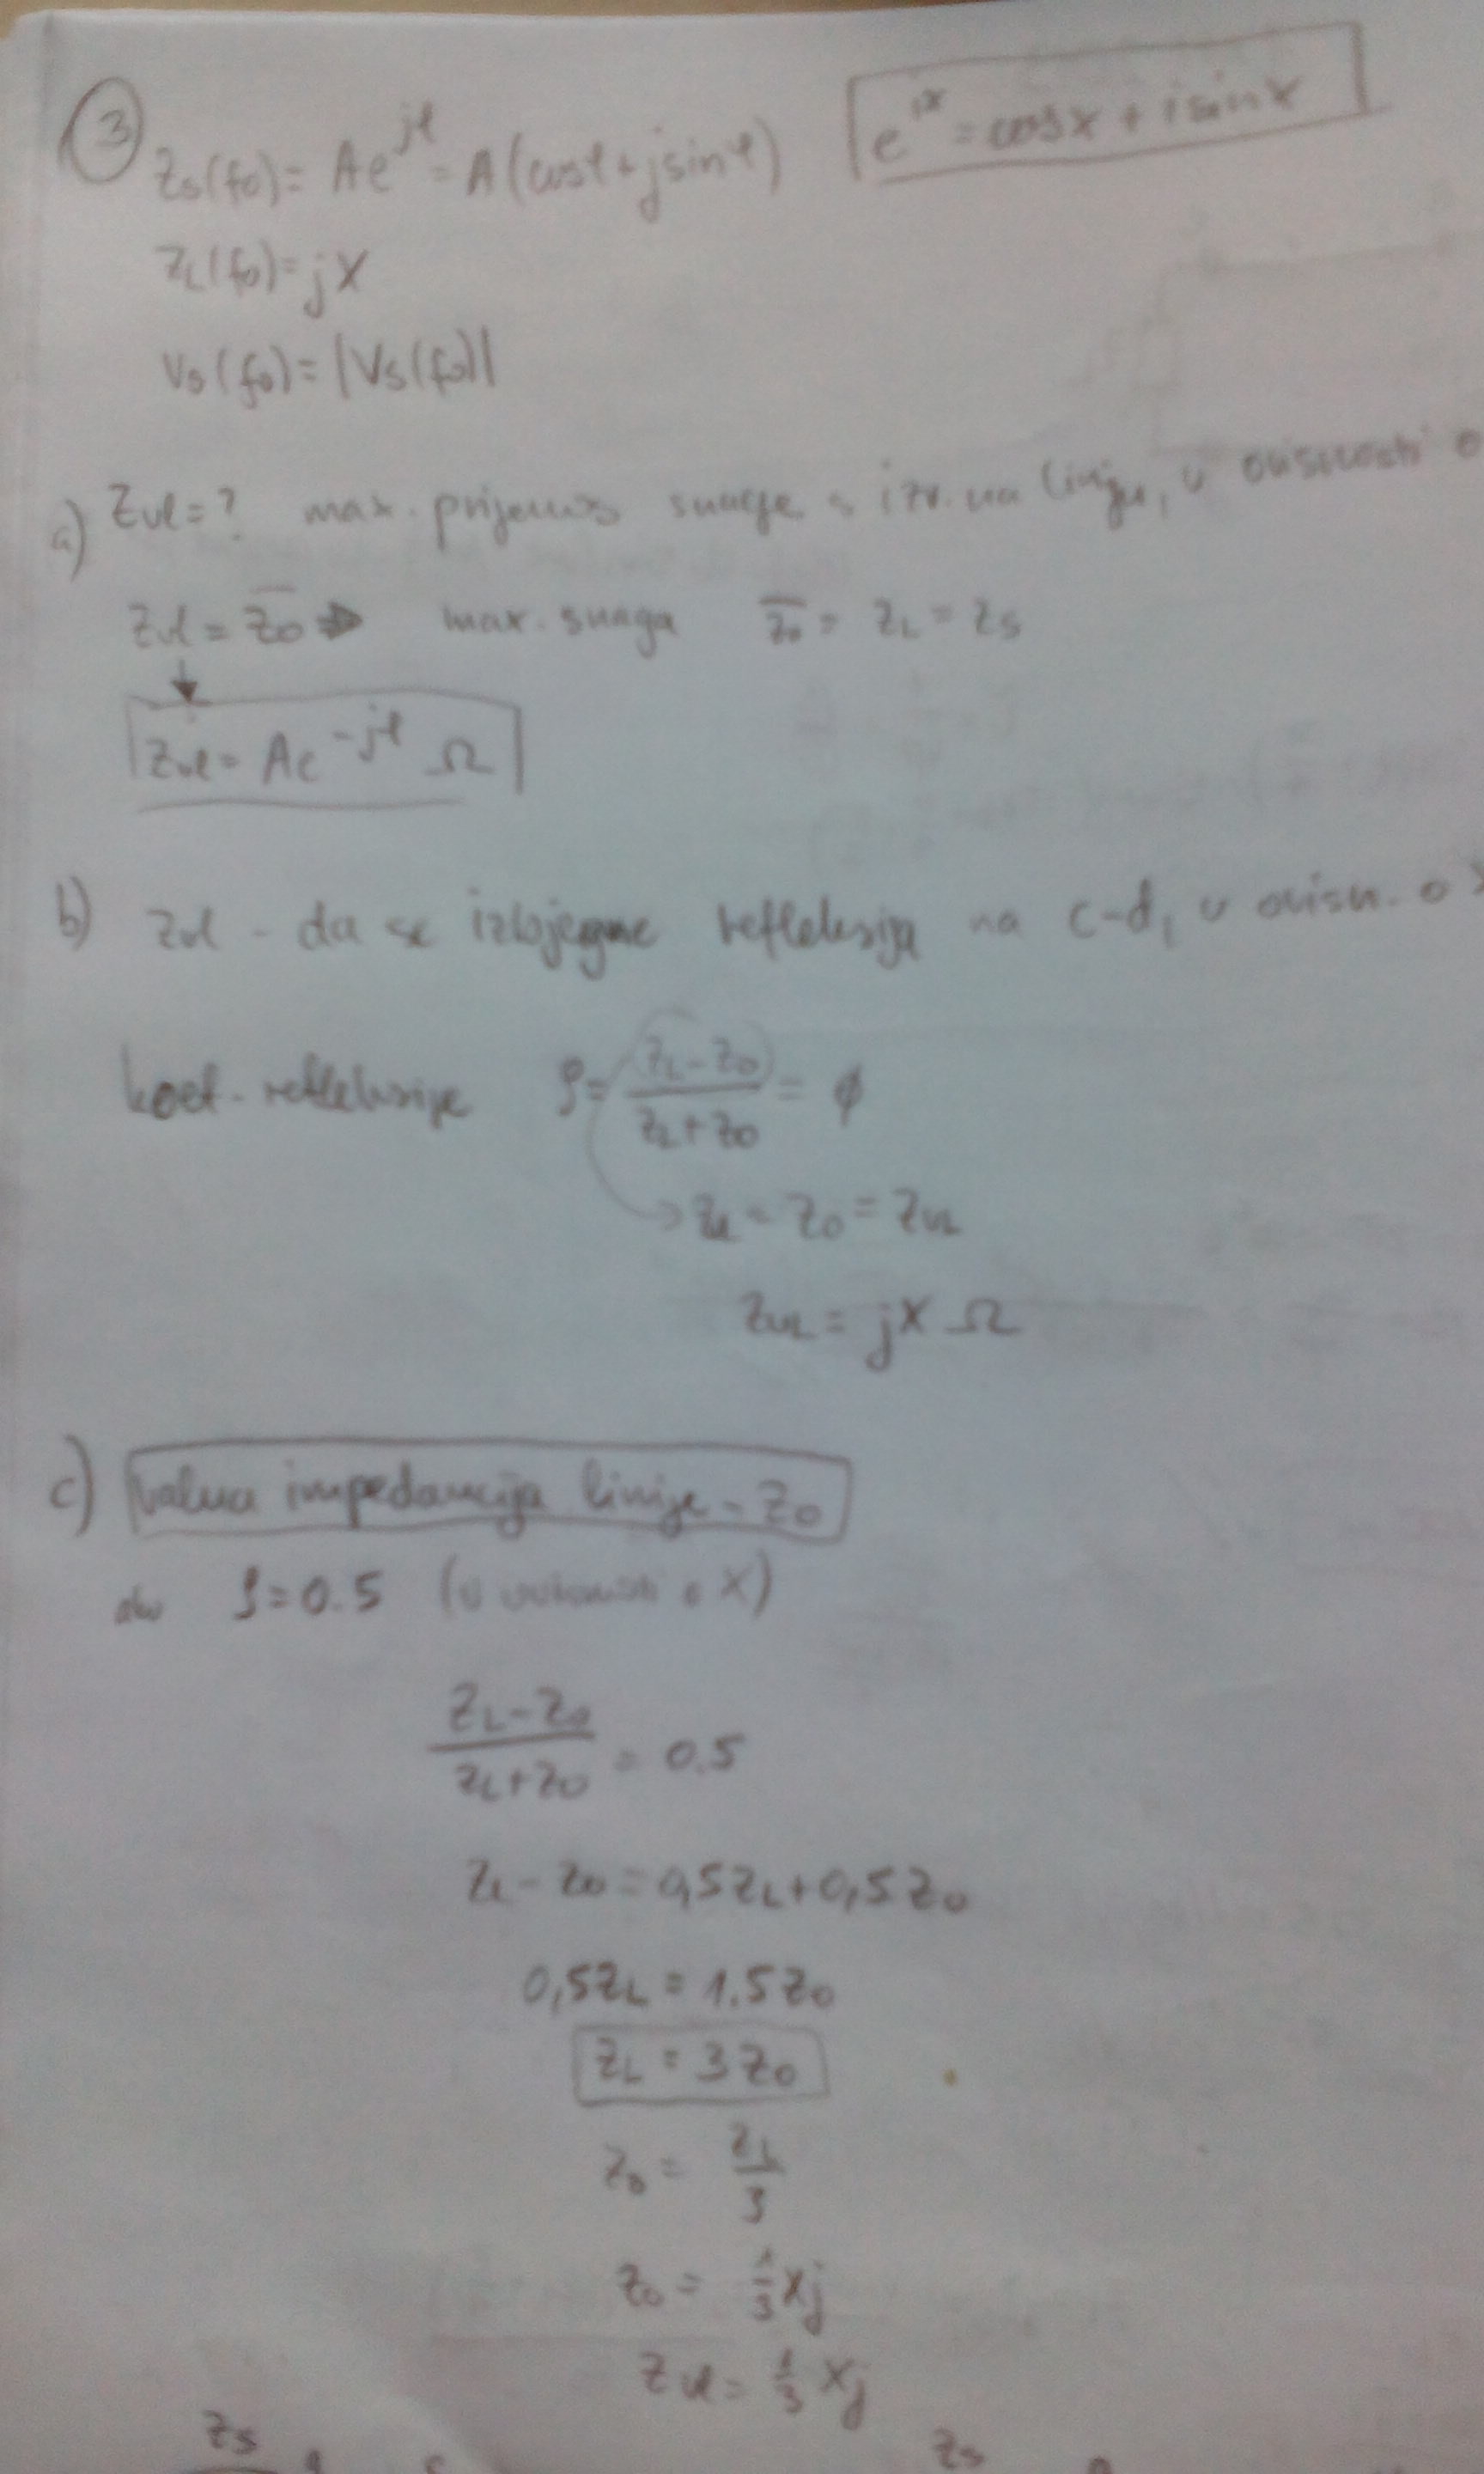 ③ Zs(f0) = Ae^jφ = A(cosφ + j sinφ) e^ix = cosx + i sinx
ZL(f0) = jX
Vs(f0) = |Vs(f0)|
a) Zul = ? max. prijenos snage s izv. na liniju, u ovisnosti o
Zul = Z̅0 ⇒ max. snaga Z̅0 = ZL = Zs
↓
Zul = Ae^-jφ Ω
b) Zul - da se izbjegne refleksija na c-d, u ovisn. o X
koef. refleksije ρ = (ZL - Z0)/(ZL + Z0) = ϕ
→ ZL = Z0 = Zul
Zul = jX Ω
c) valna impedancija linije - Z0
ako ρ = 0.5 (u ovisnosti o X)
(ZL - Z0)/(ZL + Z0) = 0.5
ZL - Z0 = 0,5ZL + 0,5Z0
0,5ZL = 1.5Z0
ZL = 3Z0
Z0 = ZL/3
Z0 = 1/3 Xj
Zul = 1/3 Xj
Zs Zs